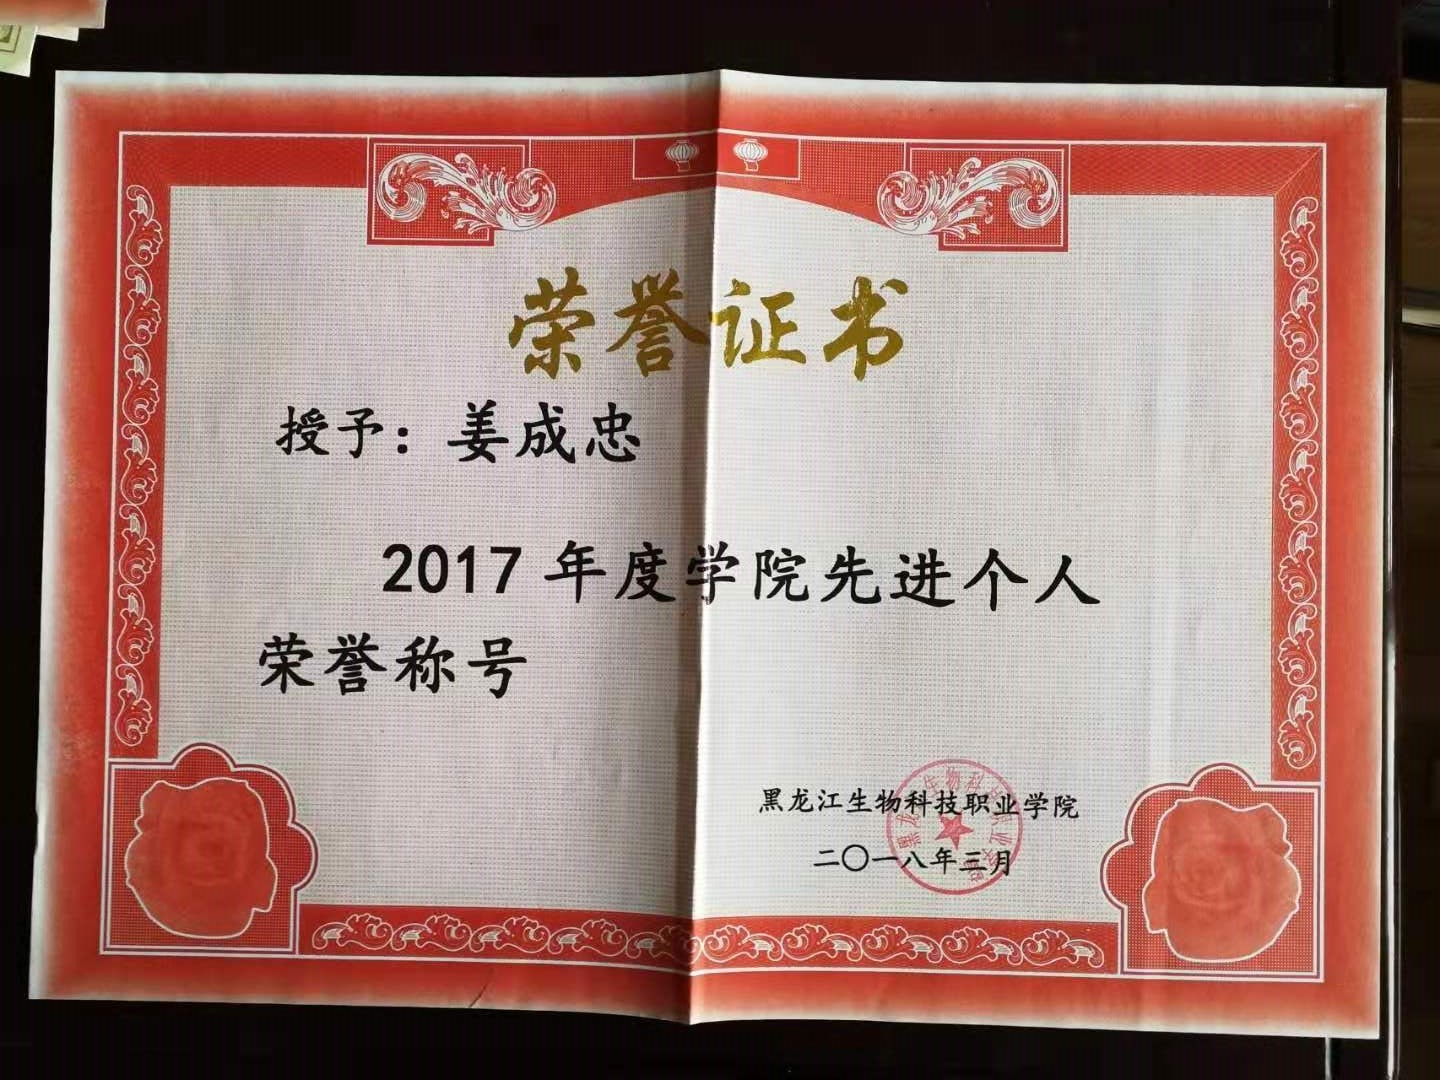 荣誉证书
授予：姜成忠
2017年度学院先进个人
荣誉称号
黑龙江生物科技职业学院
二〇一八年三月